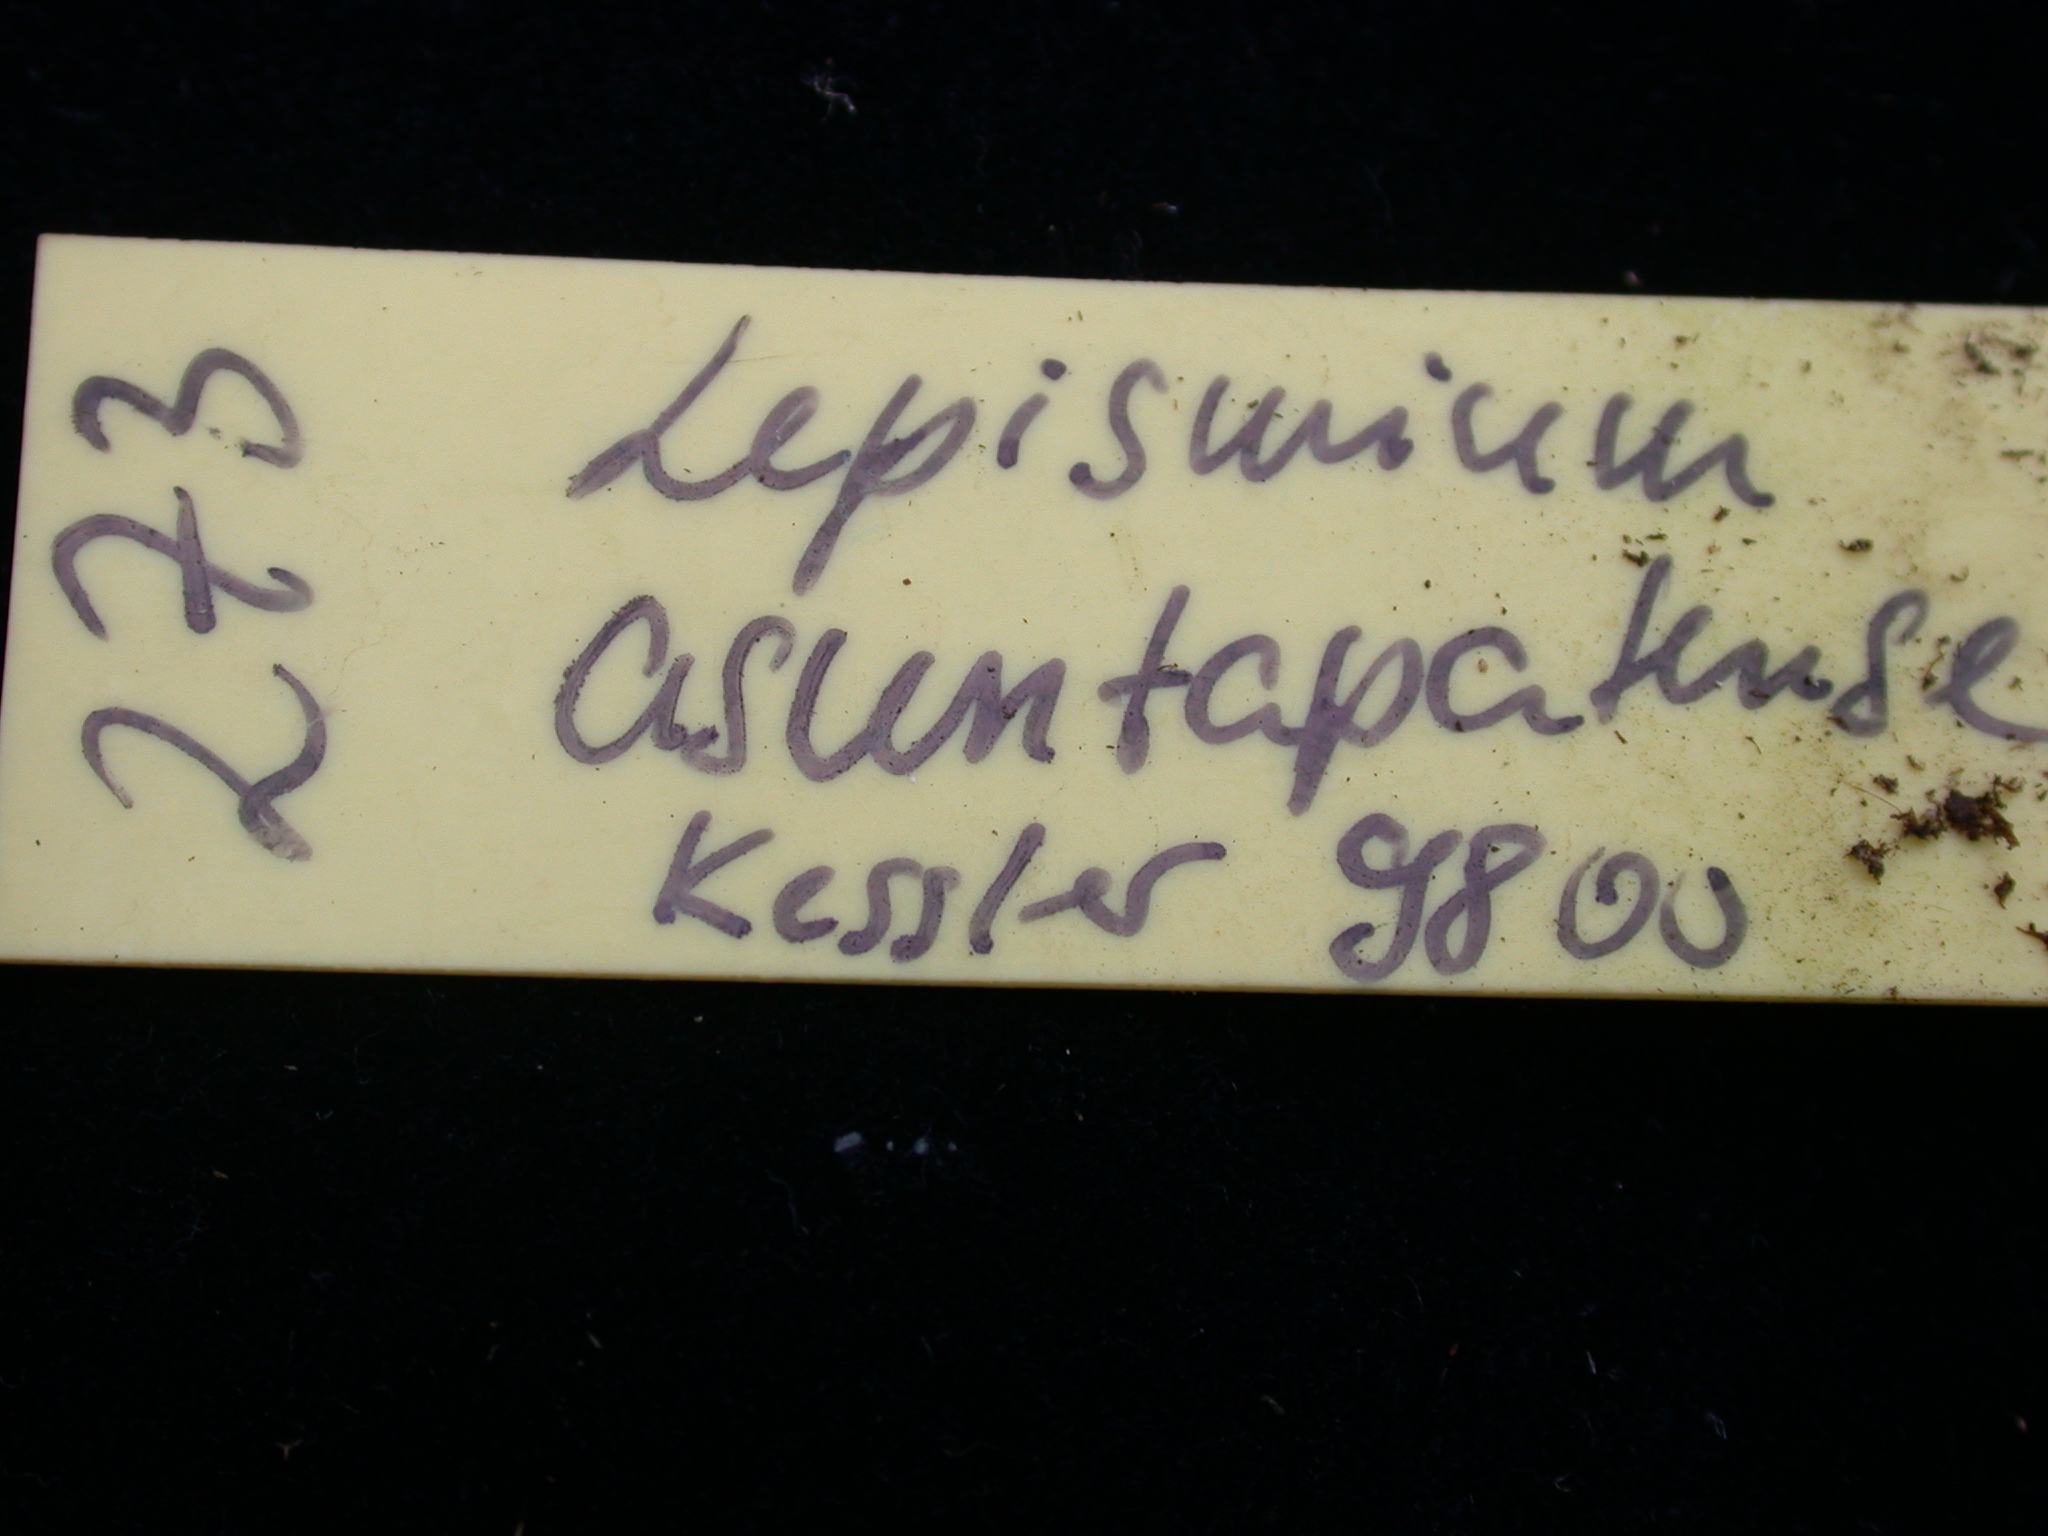 273
Lepismium
asuntapatense
Kessler 9800